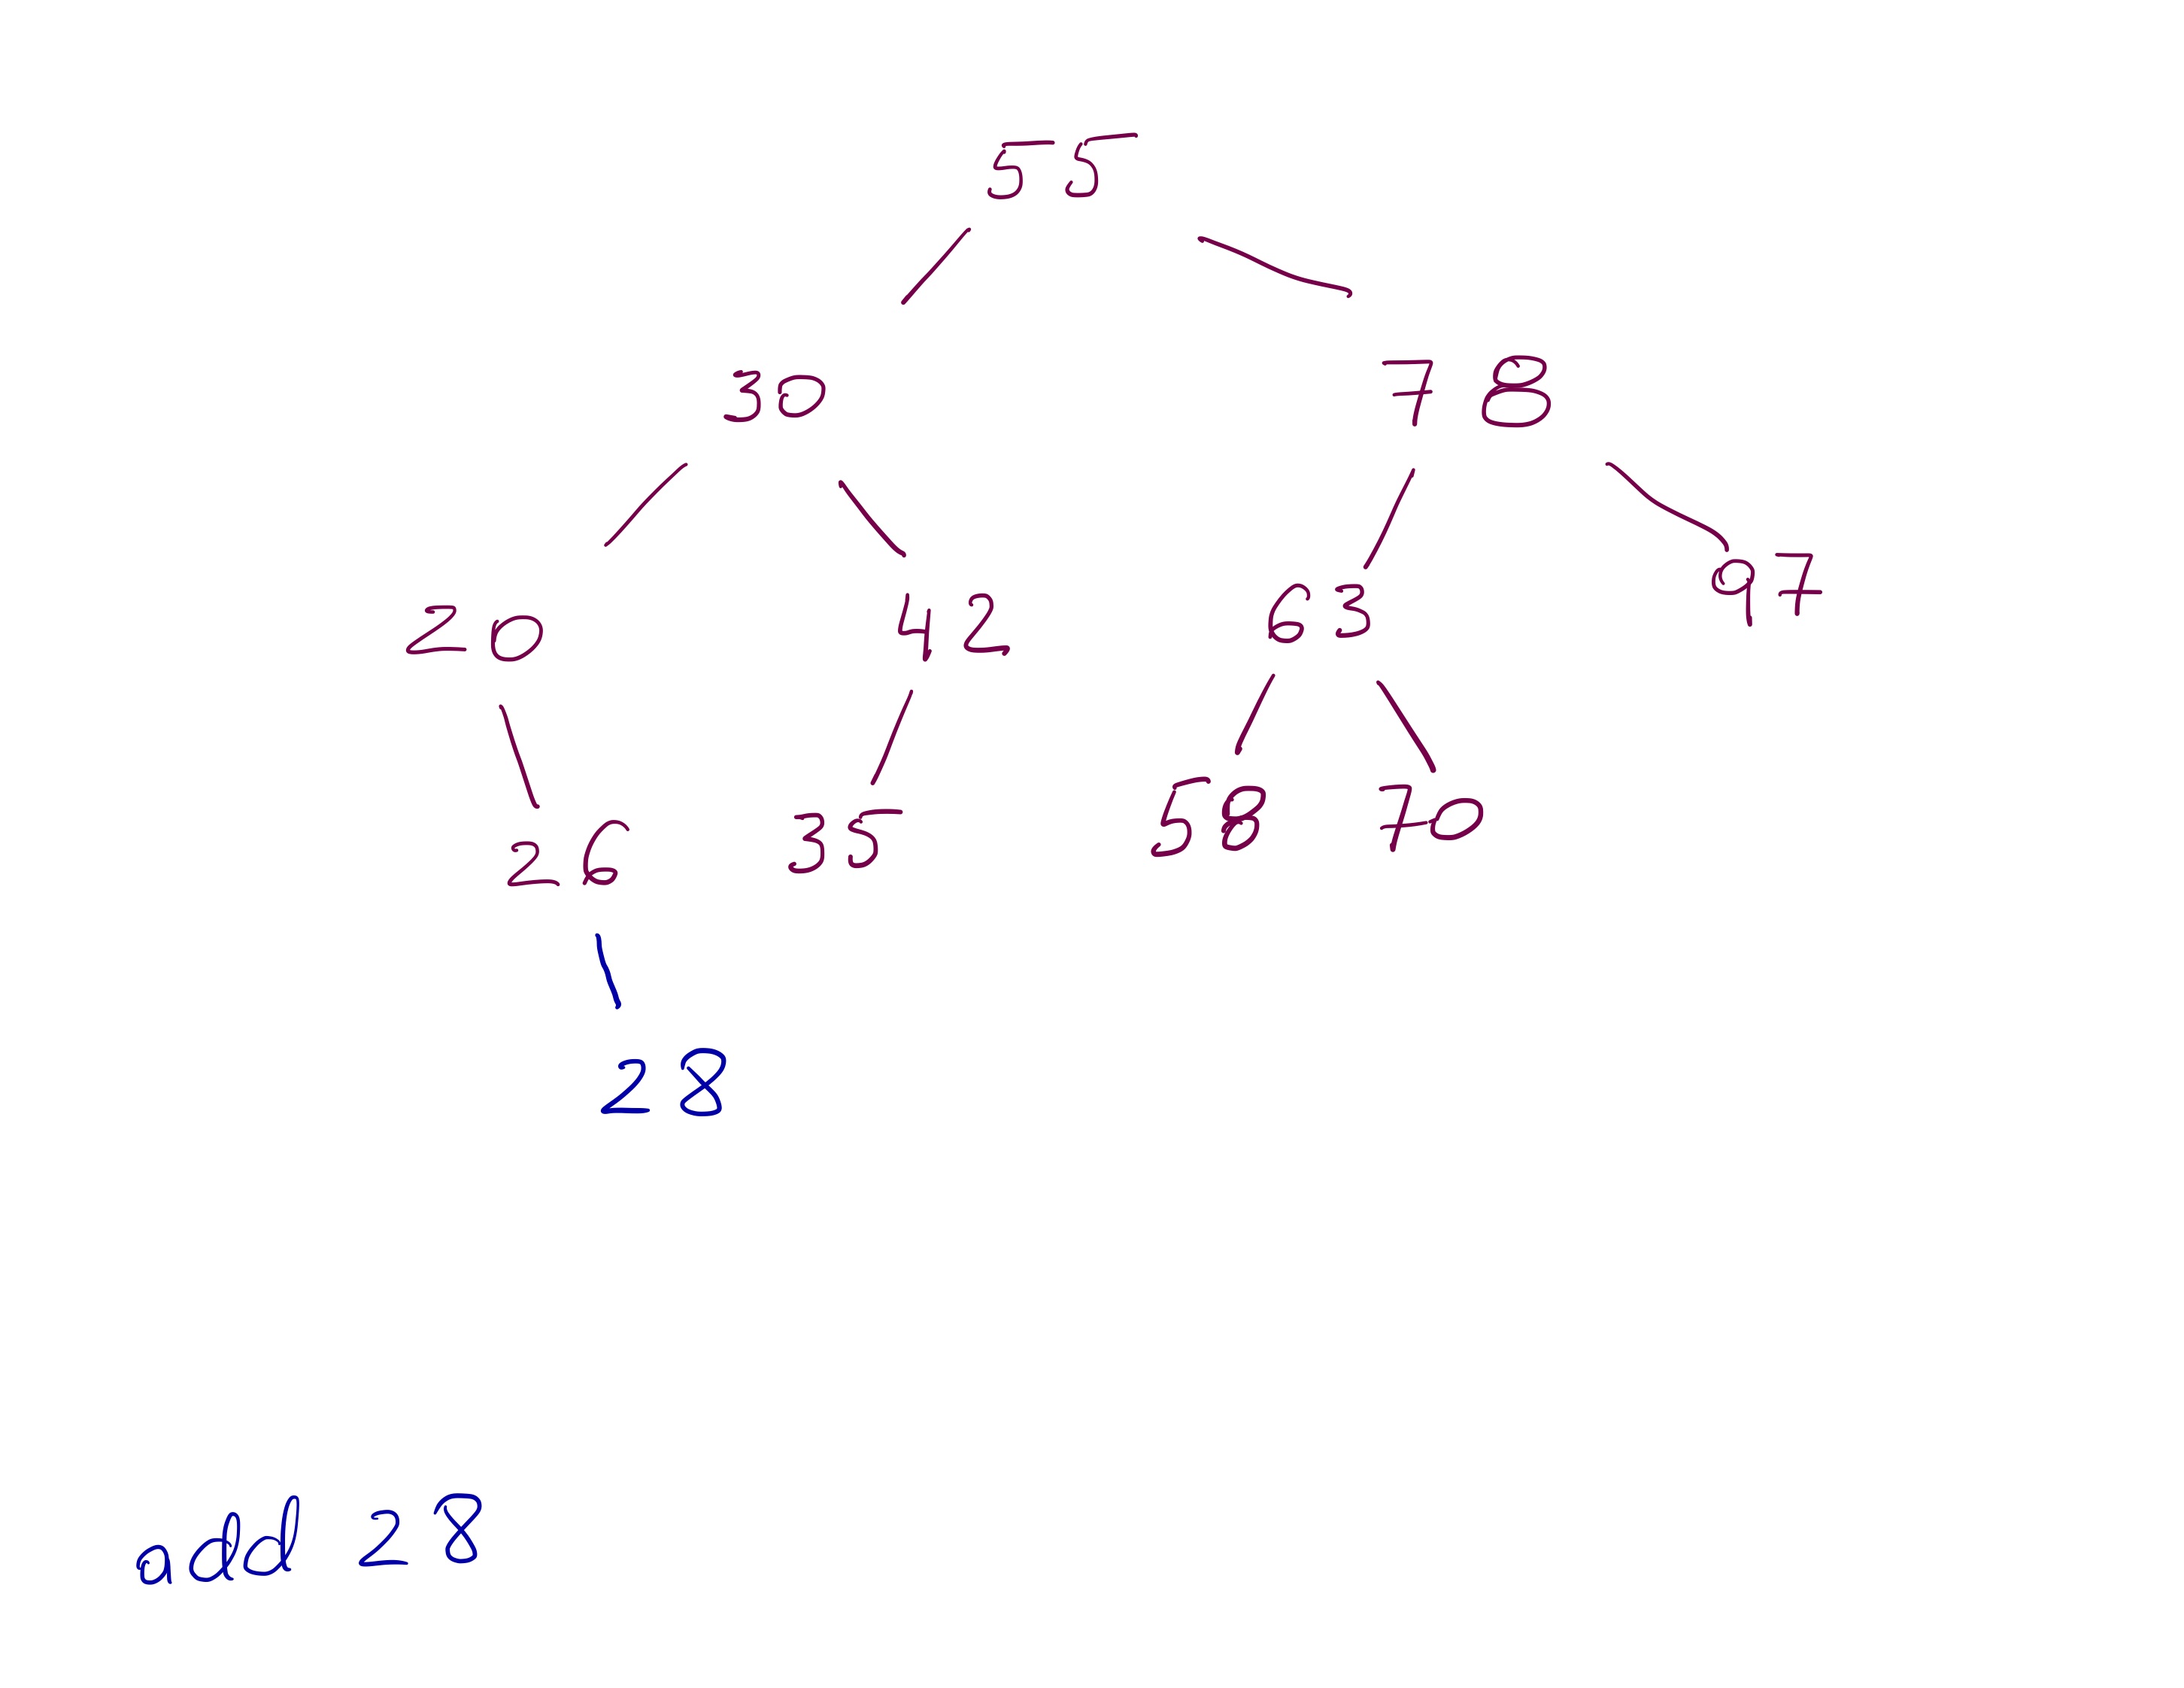 55
30 78
20 42 63 97
26 35 58 70
28
add 28